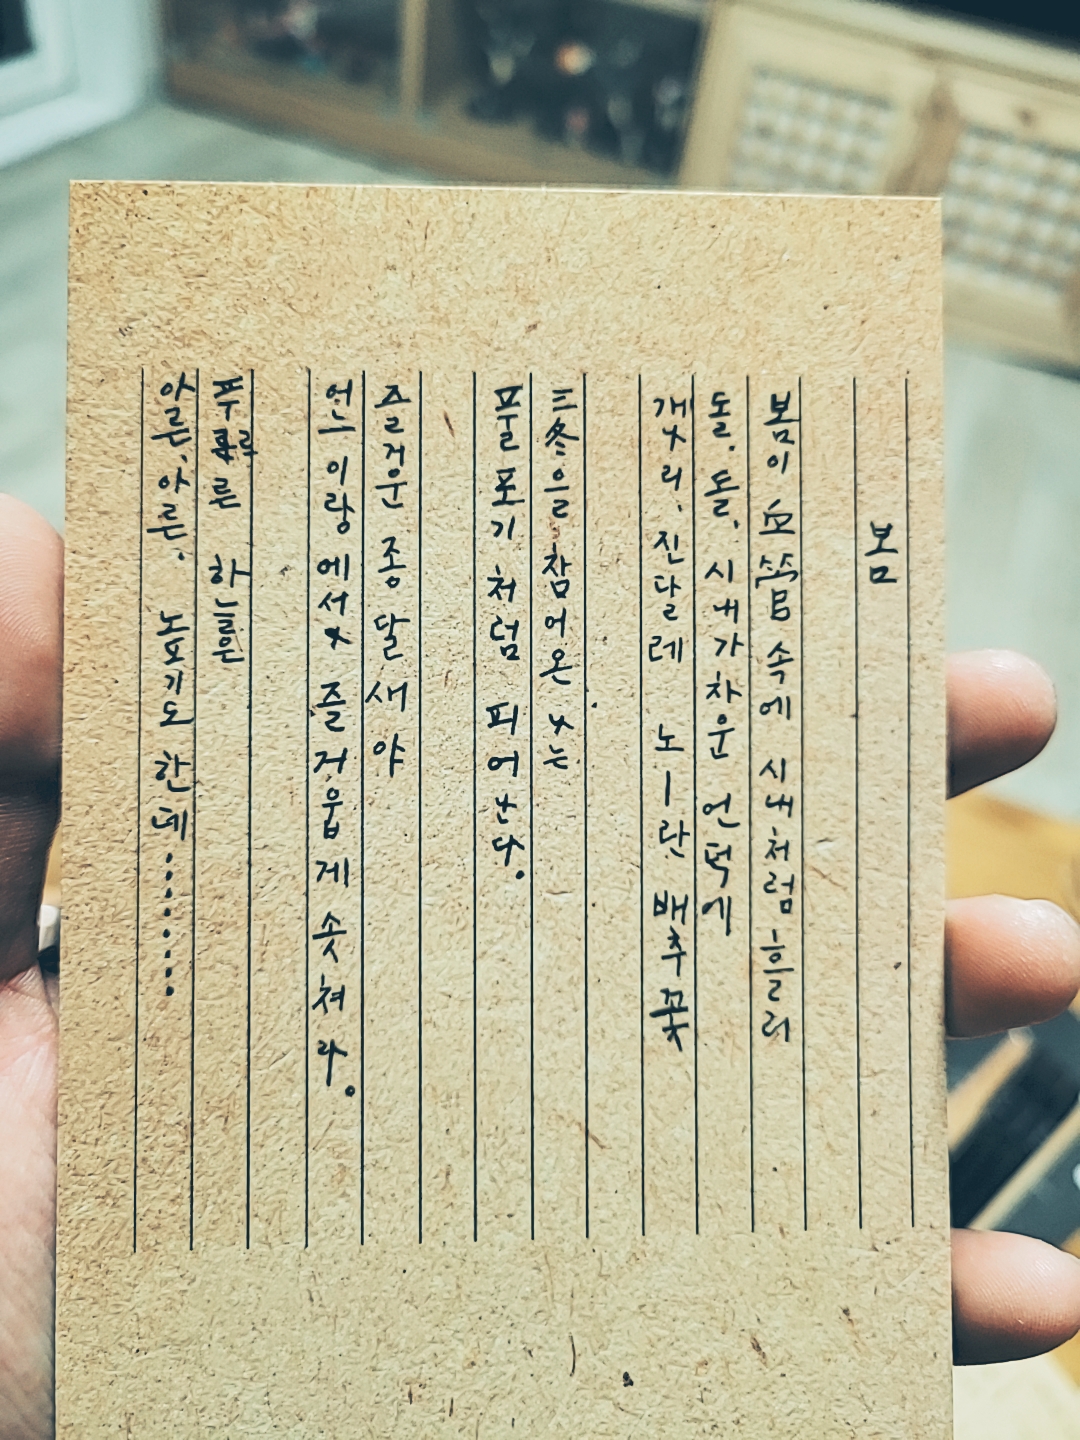 봄
봄이 血管 속에 시내처럼 흘러
돌, 돌, 시내가차운 언덕에
개나리, 진달레 노ㅡ란 배추꽃
三冬을 참어온 나는
풀포기 처럼 피어난다.
즐거운 종달새야
어느 이랑에서나 즐거웁게 솟쳐라.
푸르른 하늘은
아른, 아른, 높기도 한데………